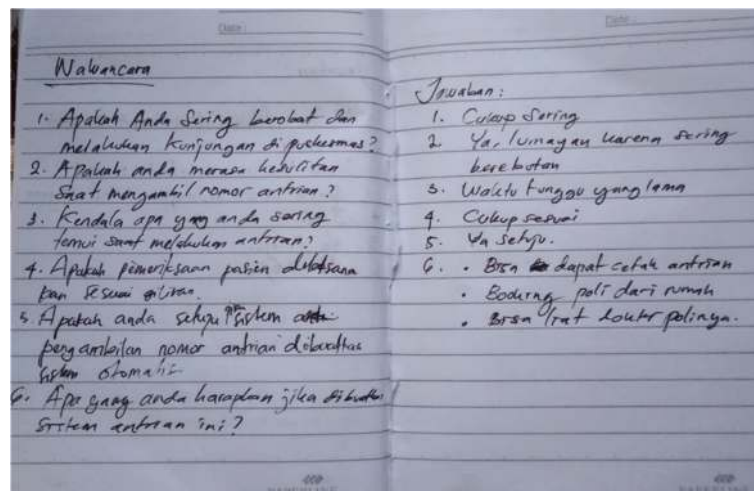 Date :
Wawancara
1. Apakah Anda Sering berobat dan
melakukan kunjungan di puskesmas?
2. Apakah anda merasa kesulitan
Saat mengambil nomor antrian?
3. Kendala apa yang anda sering
temui saat melakukan antrian?
4. Apakah pemeriksaan pasien dilaksana
kan sesuai giliran.
5. Apakah anda setuju sistem
pengambilan nomor antrian dibuatkan
sistem otomatis
6. Apa yang anda harapkan jika dibuatkan
sistem antrian ini?
Date :
Jawaban :
1. Cukup Sering
2. Ya, lumayan karena sering
berebutan
3. Waktu tunggu yang lama
4. Cukup sesuai
5. Ya setuju.
6. • Bisa dapat cetak antrian
• Booking poli dari rumah
• Bisa liat dokter polinya.